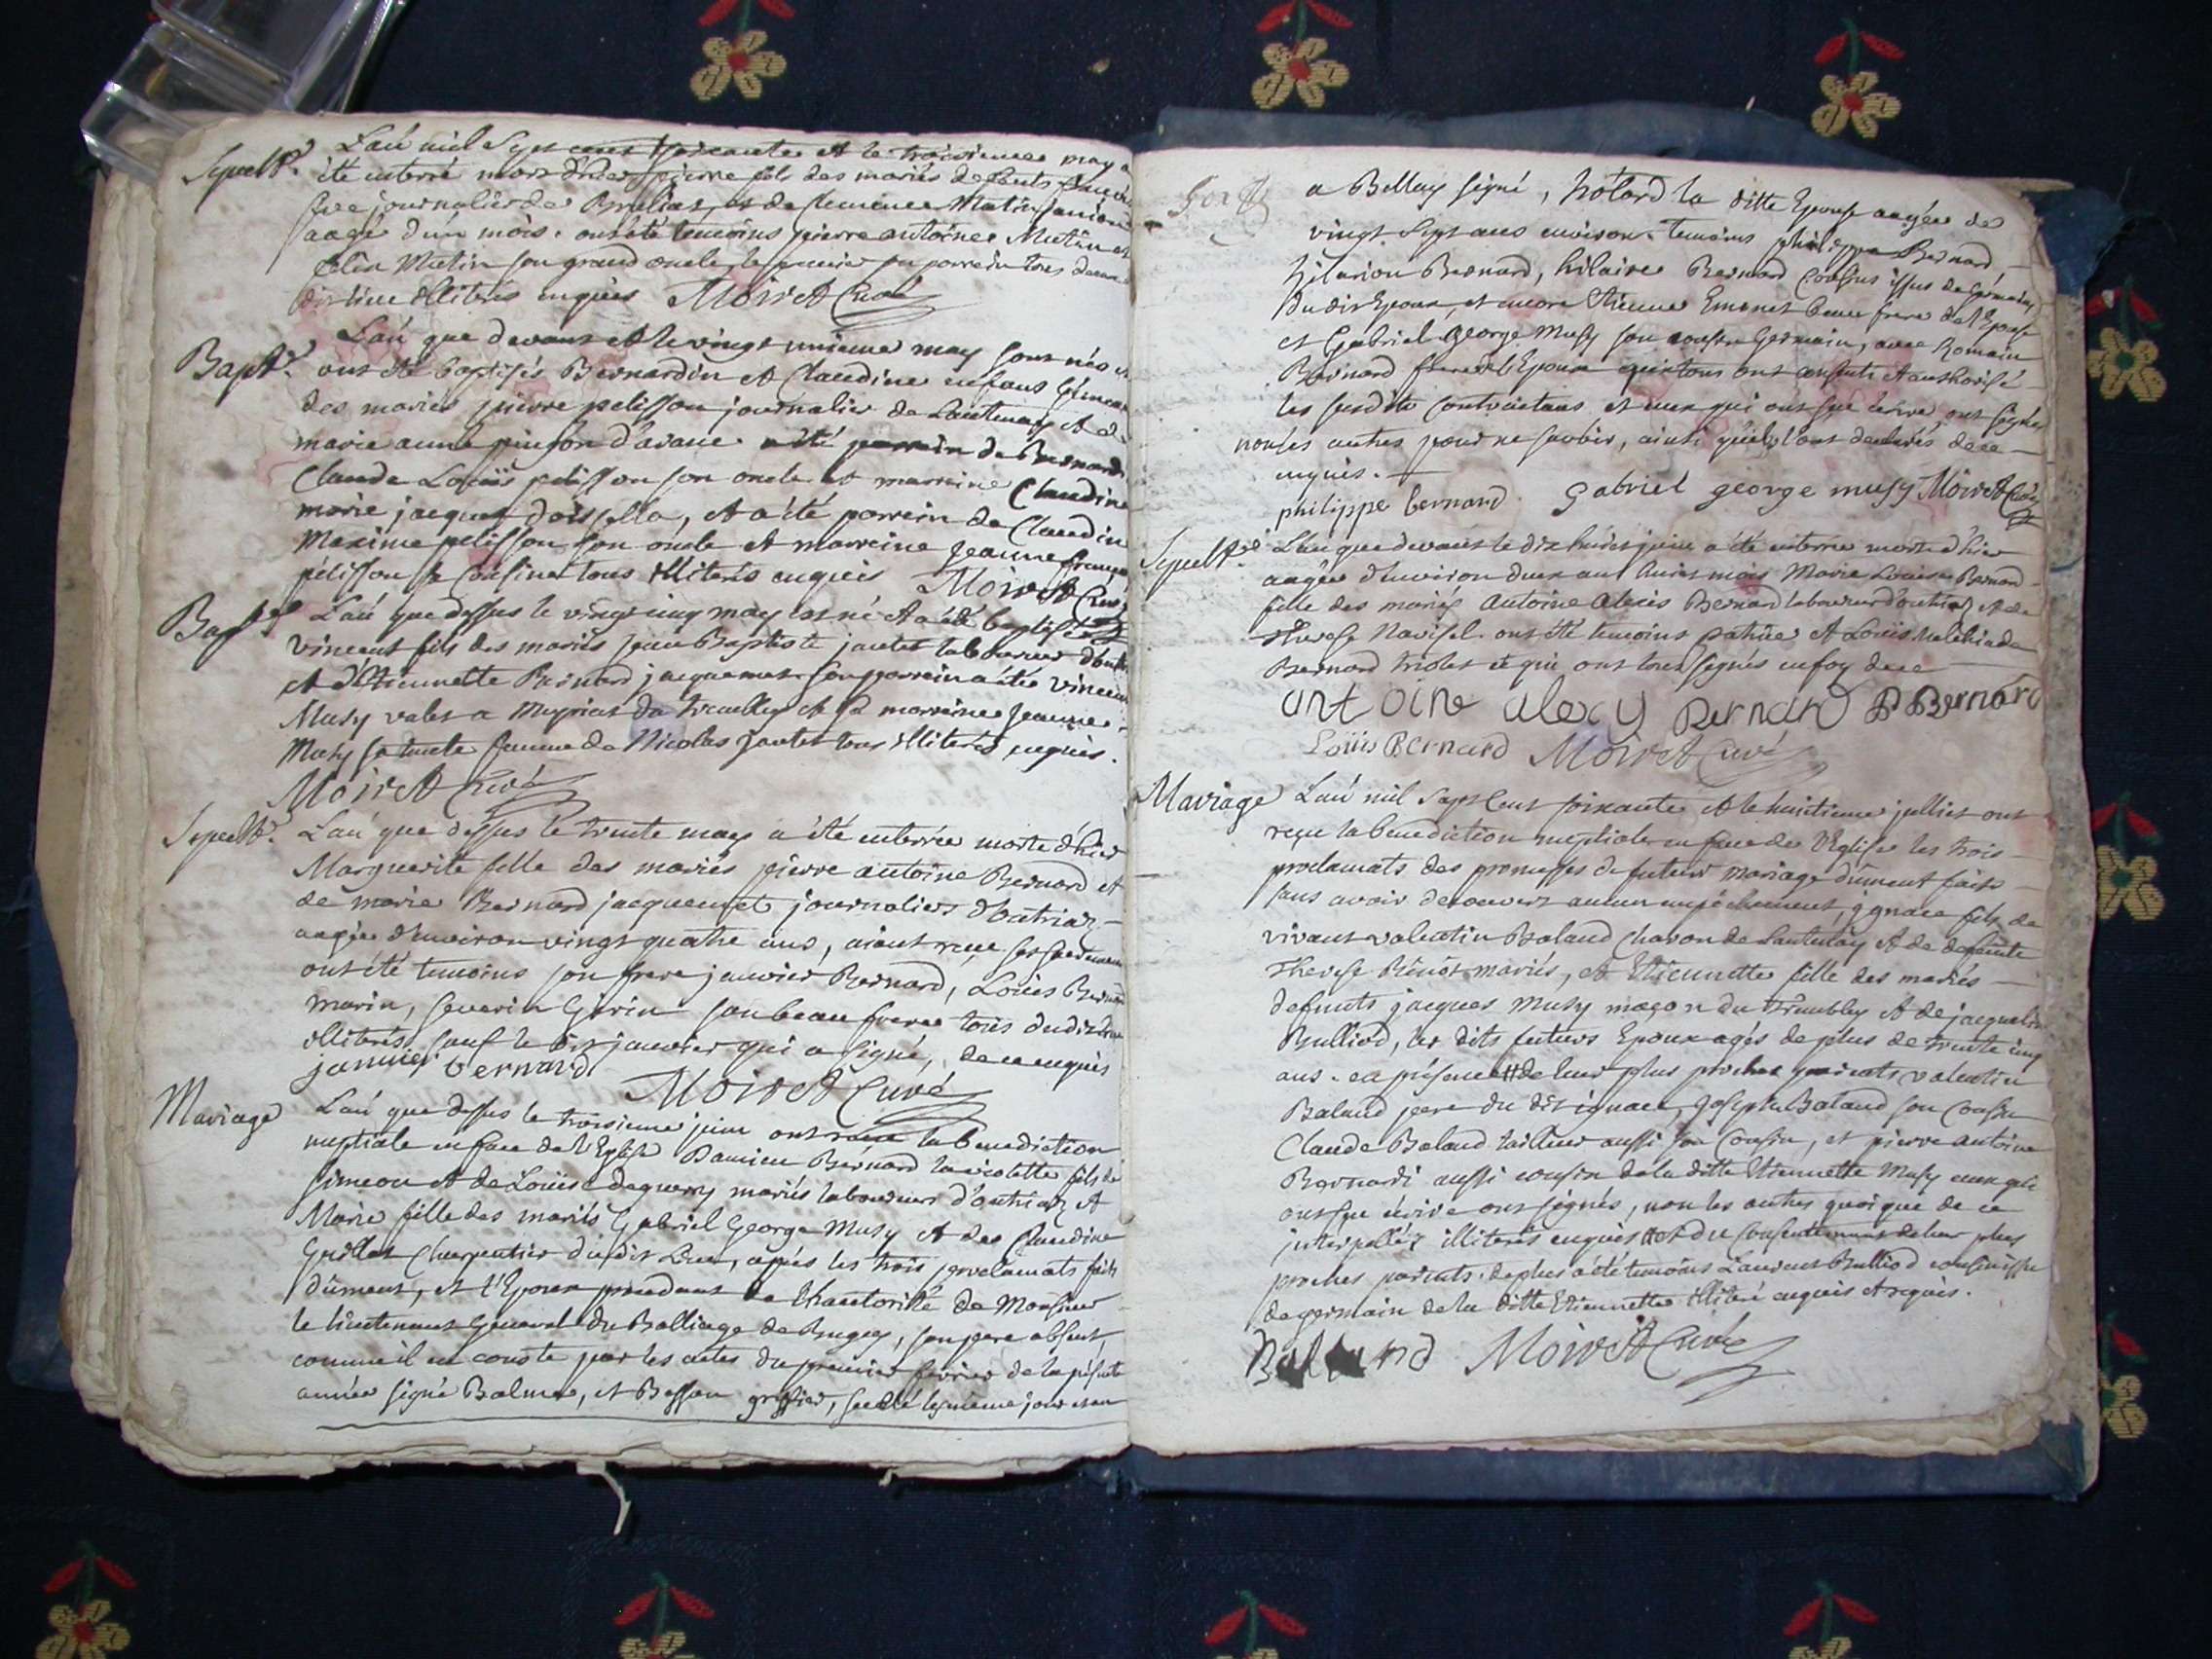 Sepult.re
L'añ mil Sept cent soixante et le troisieme may a
été enterré mort d'hier pierre fils des mariés defunts
journalier de et de clemence Mutin
aagé d'un mois. ont été temoins pierre antoine Mutin et
Mutin son grand oncle, le premier son parrein tous
illiterés enquis Moiret Curé
Bapt.e
L'añ que devant et le vingt unieme may sont nés et
ont été baptisés Bernardin et Claudine enfans
des mariés pierre pelisson journalier de Lantenay et de
marie anne pinson d'avane a été parrein de Bernardi
Claude Loüis pelisson son oncle et marreine Claudine
marie jacquet et a été parrein de Claudin
Maxime pelisson son oncle et marreine Jeanne
pelisson sa cousine tous illiterés enquis Moiret Curé
Bapt.e
L'añ que dessus le vingt cinq may est né et a été baptisé
vincent fils des mariés jean Baptiste jantet laboureur
et d'Etiennette Bernard jacquemet son parrein a été vincent
Musy valet a Meyriat du trembley et sa marreine Jeanne
Musy sa tante femme de Nicolas jantet tous illiterés enquis.
Moiret Curé
Sepult.e
L'añ que dessus le trente may a été enterrée morte d'hier
Marguerite fille des mariés pierre antoine Bernard et
de marie Bernard jacquemet journaliers d'outriaz
aagée d'environ vingt quatre ans, aiant reçu ses sacremens
ont été temoins son frere janvier Bernard, Loüis Bernard
marin, severin Girin son beau frere tous dudit lieu
illiterés sauf le dit janvier qui a signé, de ce enquis
janvier bernard Moiret Curé
Mariage
L'añ que dessus le troisieme juin ont recu la benediction
nuptiale en face de l'Eglise Damien Bernard la violette fils de
simeon et de Loüise deguerry mariés laboureur d'outriaz et
Marie fille des mariés Gabriel George Musy et de Claudine
Grillet Charpentier dudit Lieu, après les trois proclamats faits
dûment, et l'Epoux procedant de l'hautorité de Monsieur
le lieutenant General du Balliage de Bugey, son pere absent,
comme il en conste par les actes du premier fevrier de la presente
année signé Balme, et Besson greffier, scellé le même jour
a Bellay signé, hotard la ditte Epouse aagée de
vingt Sept ans environ. temoins philippe Bernard,
hilarion Bernard, hilaire Bernard Cousins issus de Germains
du dit Epoux, et encore Etienne Emonet beau frere de l'Epouse
et Gabriel George Musy son cousin Germain, avec Romain
Bernard frere de l'Epoux qui tous ont consenti et authorisé
les susdits contractans et ceux qui ont sçu écrire ont signés
non les autres pour ne savoir, ainsi qu'ils l'ont declarés de ce
enquis.
philippe bernard. Gabriel george musy Moiret Curé
Sepult.re
L'an que devant le dix huit juin a été enterrée morte d'hier
aagée d'environ deux ans huit mois Marie Louise Bernard
fille des mariés Antoine Alexis Bernard laboureur d'outriaz et de
Therese Navisel. ont été temoins patrice et Loüis
Bernard triolet et qui ont tous signés en foy de ce
antoine alexy Bernard P Bernard
Loüis Bernard Moiret Curé
Mariage
L'añ mil Sept Cent soixante et le huitieme julliet ont
reçu la benediction nuptiale en face de l'Eglise les trois
proclamats des promesses de futeur mariage dûment faits
sans avoir decouvert aucun empéchement, ignace fils de
vivant valentin Baland Charon de Lantenay et de defunte
Therese Benoit mariés, et Etiennette fille des mariés
defunts jacques Musy maçon du Trembley et de jacqueline
Bulliod, les dits futurs Epoux agés de plus de trente cinq
ans. en présence # de leur plus proches parents valentin
Baland pere du dit ignace, joseph Baland son Cousin
Claude Baland tailleur aussi son Cousin, et pierre antoine
Bernardi aussi cousin de la ditte Etiennette Musy ceux qui
ont sçu écrire ont signés, non les autres quoique de ce
interpellés illiterés enquis # et du consentement de leur plus
proches parents. de plus a été temoins Laurent Bulliod cousin issu
de germain de la ditte Etiennette illiteré enquis et requis.
Baland Moiret Curé